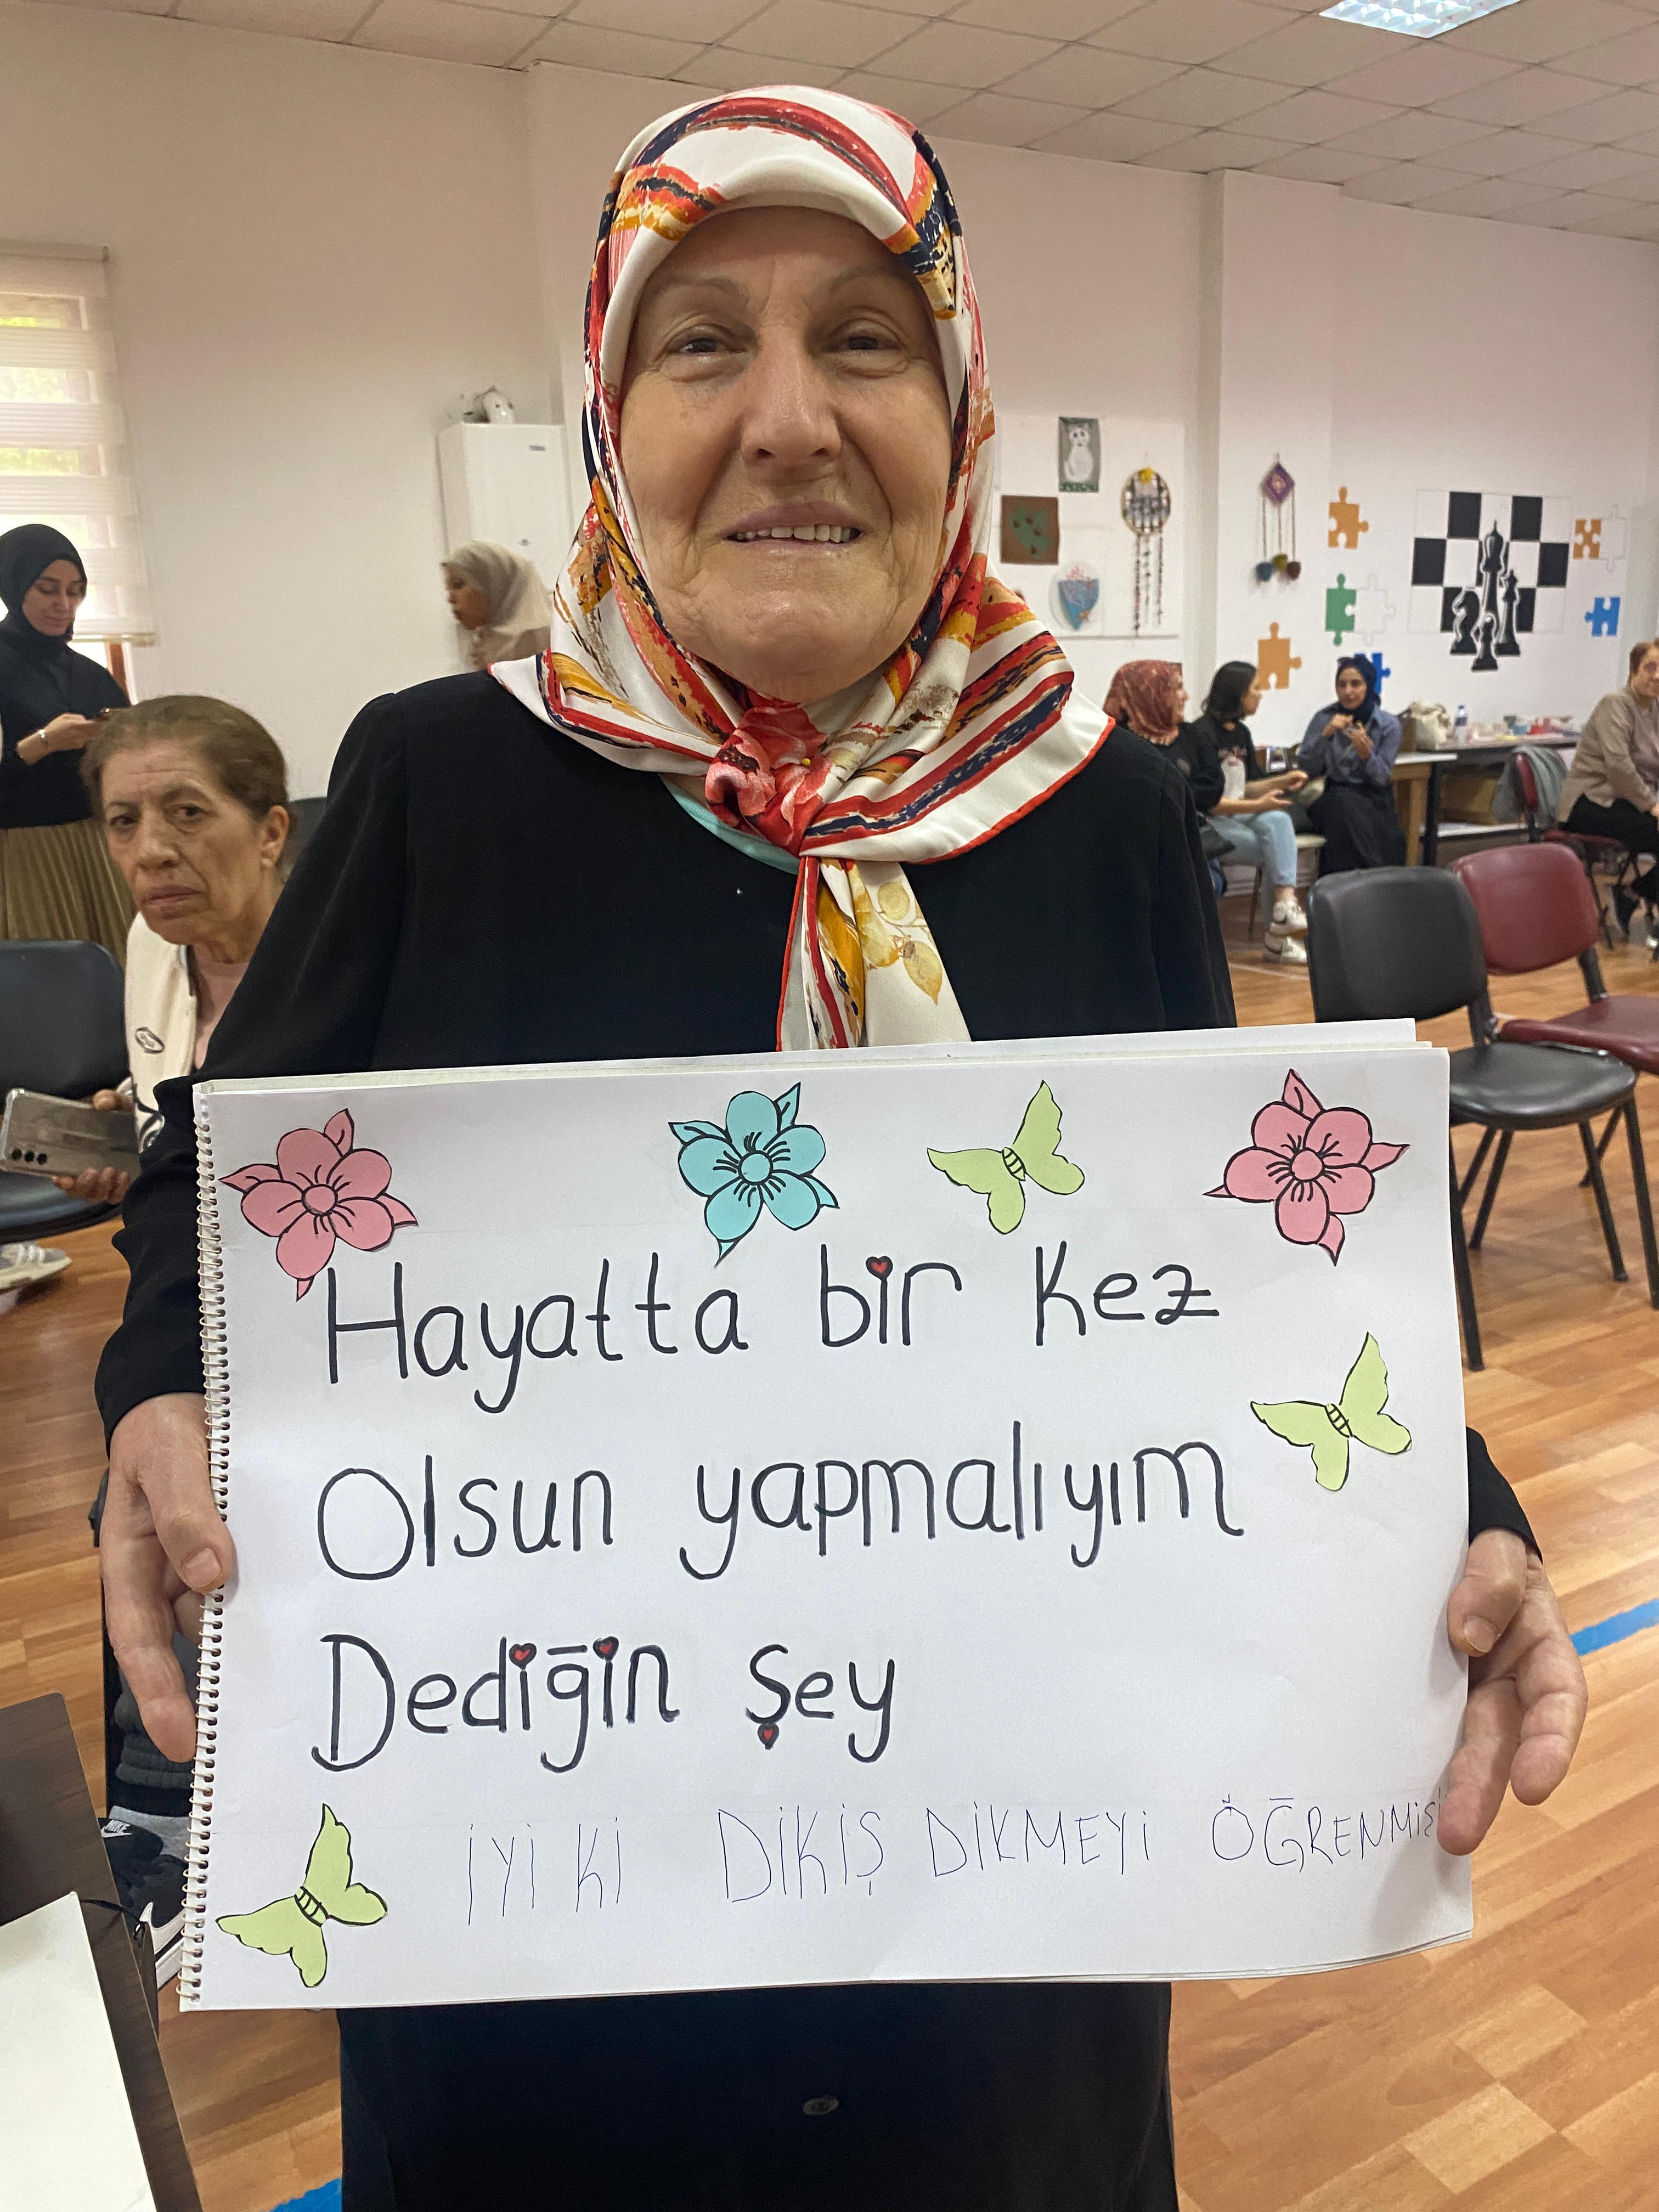 Hayatta bir kez
Olsun yapmalıyım
Dediğin Şey
İYİ Kİ DİKİŞ DİKMEYİ